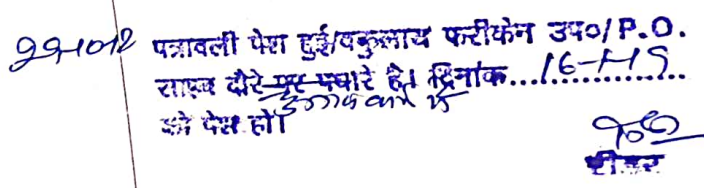 पत्रावली पेश हुई/वकुलाय फरीकेन उप०/P.O.
साहब दौरे पर पधारे है। दिनांक....16-1-19....
को पेश हो।
रीडर